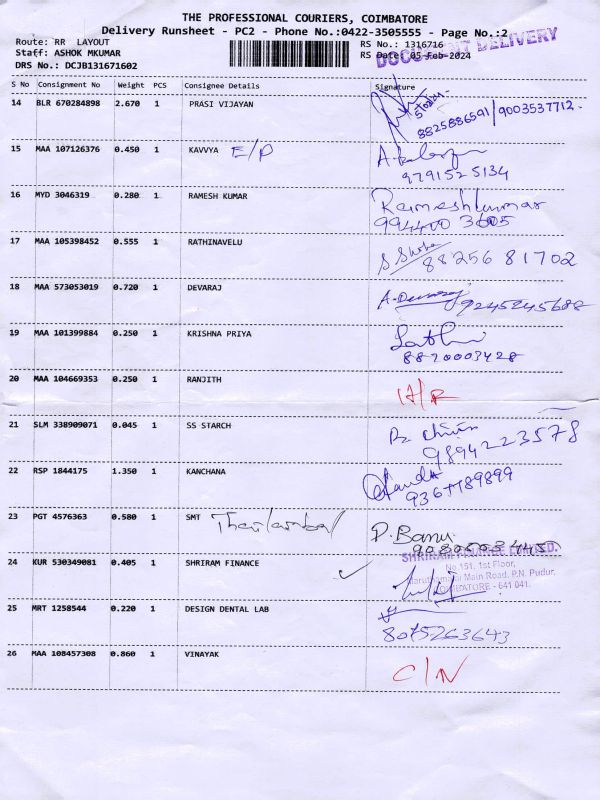 THE PROFESSIONAL COURIERS, COIMBATORE
Delivery Runsheet - PC2 - Phone No.:0422-3505555 - Page No.:2
Route: RR LAYOUT RS No.: 1316716
Staff: ASHOK MKUMAR RS Date: 05-Feb-2024
DOCUMENT DELIVERY
DRS No.: DCJB131671602
S No Consignment No Weight PCS Consignee Details Signature
14 BLR 670284898 2.670 1 PRASI VIJAYAN
8825886591/9003537712
15 MAA 107126376 0.450 1 KAVVYA E/P
9791525134
16 MYD 3046319 0.280 1 RAMESH KUMAR Rameshkumar
17 MAA 105398452 0.555 1 RATHINAVELU
88256 81702
18 MAA 573053019 0.720 1 DEVARAJ A. Devaraj 9245245688
19 MAA 101399884 0.250 1 KRISHNA PRIYA
8870003428
20 MAA 104669353 0.250 1 RANJITH
21 SLM 338909071 0.045 1 SS STARCH
9894223578
22 RSP 1844175 1.350 1 KANCHANA
23 PGT 4576363 0.580 1 SMT D. Banu
24 KUR 530349081 0.405 1 SHRIRAM FINANCE SHRIRAM FINANCE LTD.
No.151, 1st Floor,
Main Road, P.N. Pudur,
COIMBATORE - 641 041.
25 MRT 1258544 0.220 1 DESIGN DENTAL LAB
8075263643
26 MAA 108457308 0.860 1 VINAYAK C/N